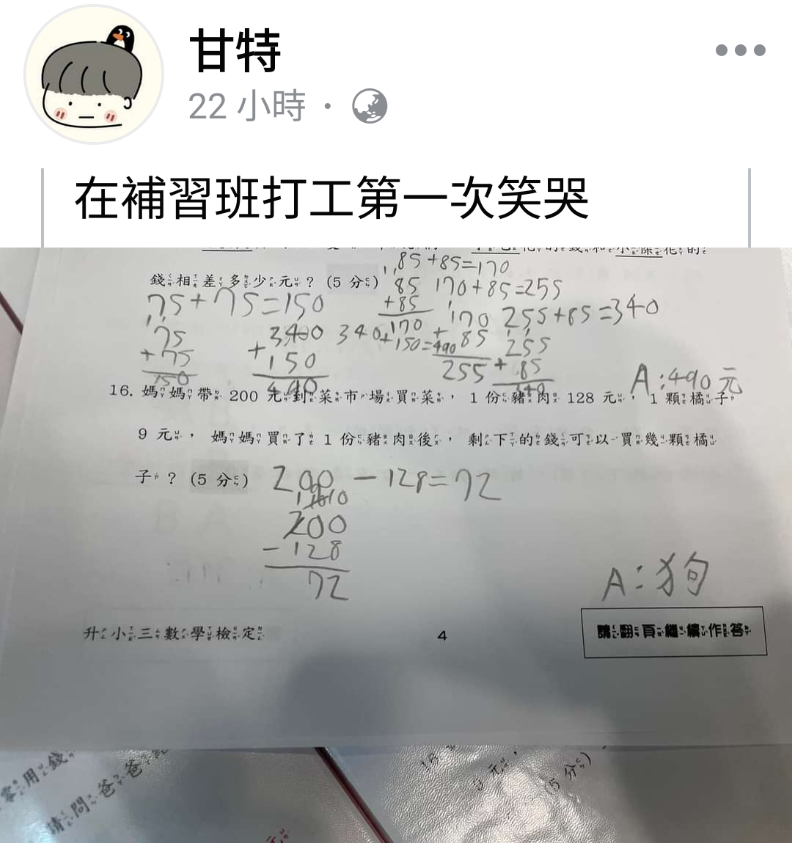 甘特
22 小時
在補習班打工第一次笑哭
錢相差多少元？(5 分)
85+85=170
75+75=150
85
+85
170
170+85=255
170
+ 85
255
255+85=340
255
+ 85
340
75
+75
150
340
+150
490
340+150=490
A:490元
16. 媽媽帶 200 元到菜市場買菜，1 份豬肉 128 元，1 顆橘子
9 元，媽媽買了 1 份豬肉後，剩下的錢可以買幾顆橘
子？(5 分)
200-128=72
200
-128
72
A:狗
升小三數學檢定
4
請翻頁繼續作答
零用錢
請問爸爸
(5 分)